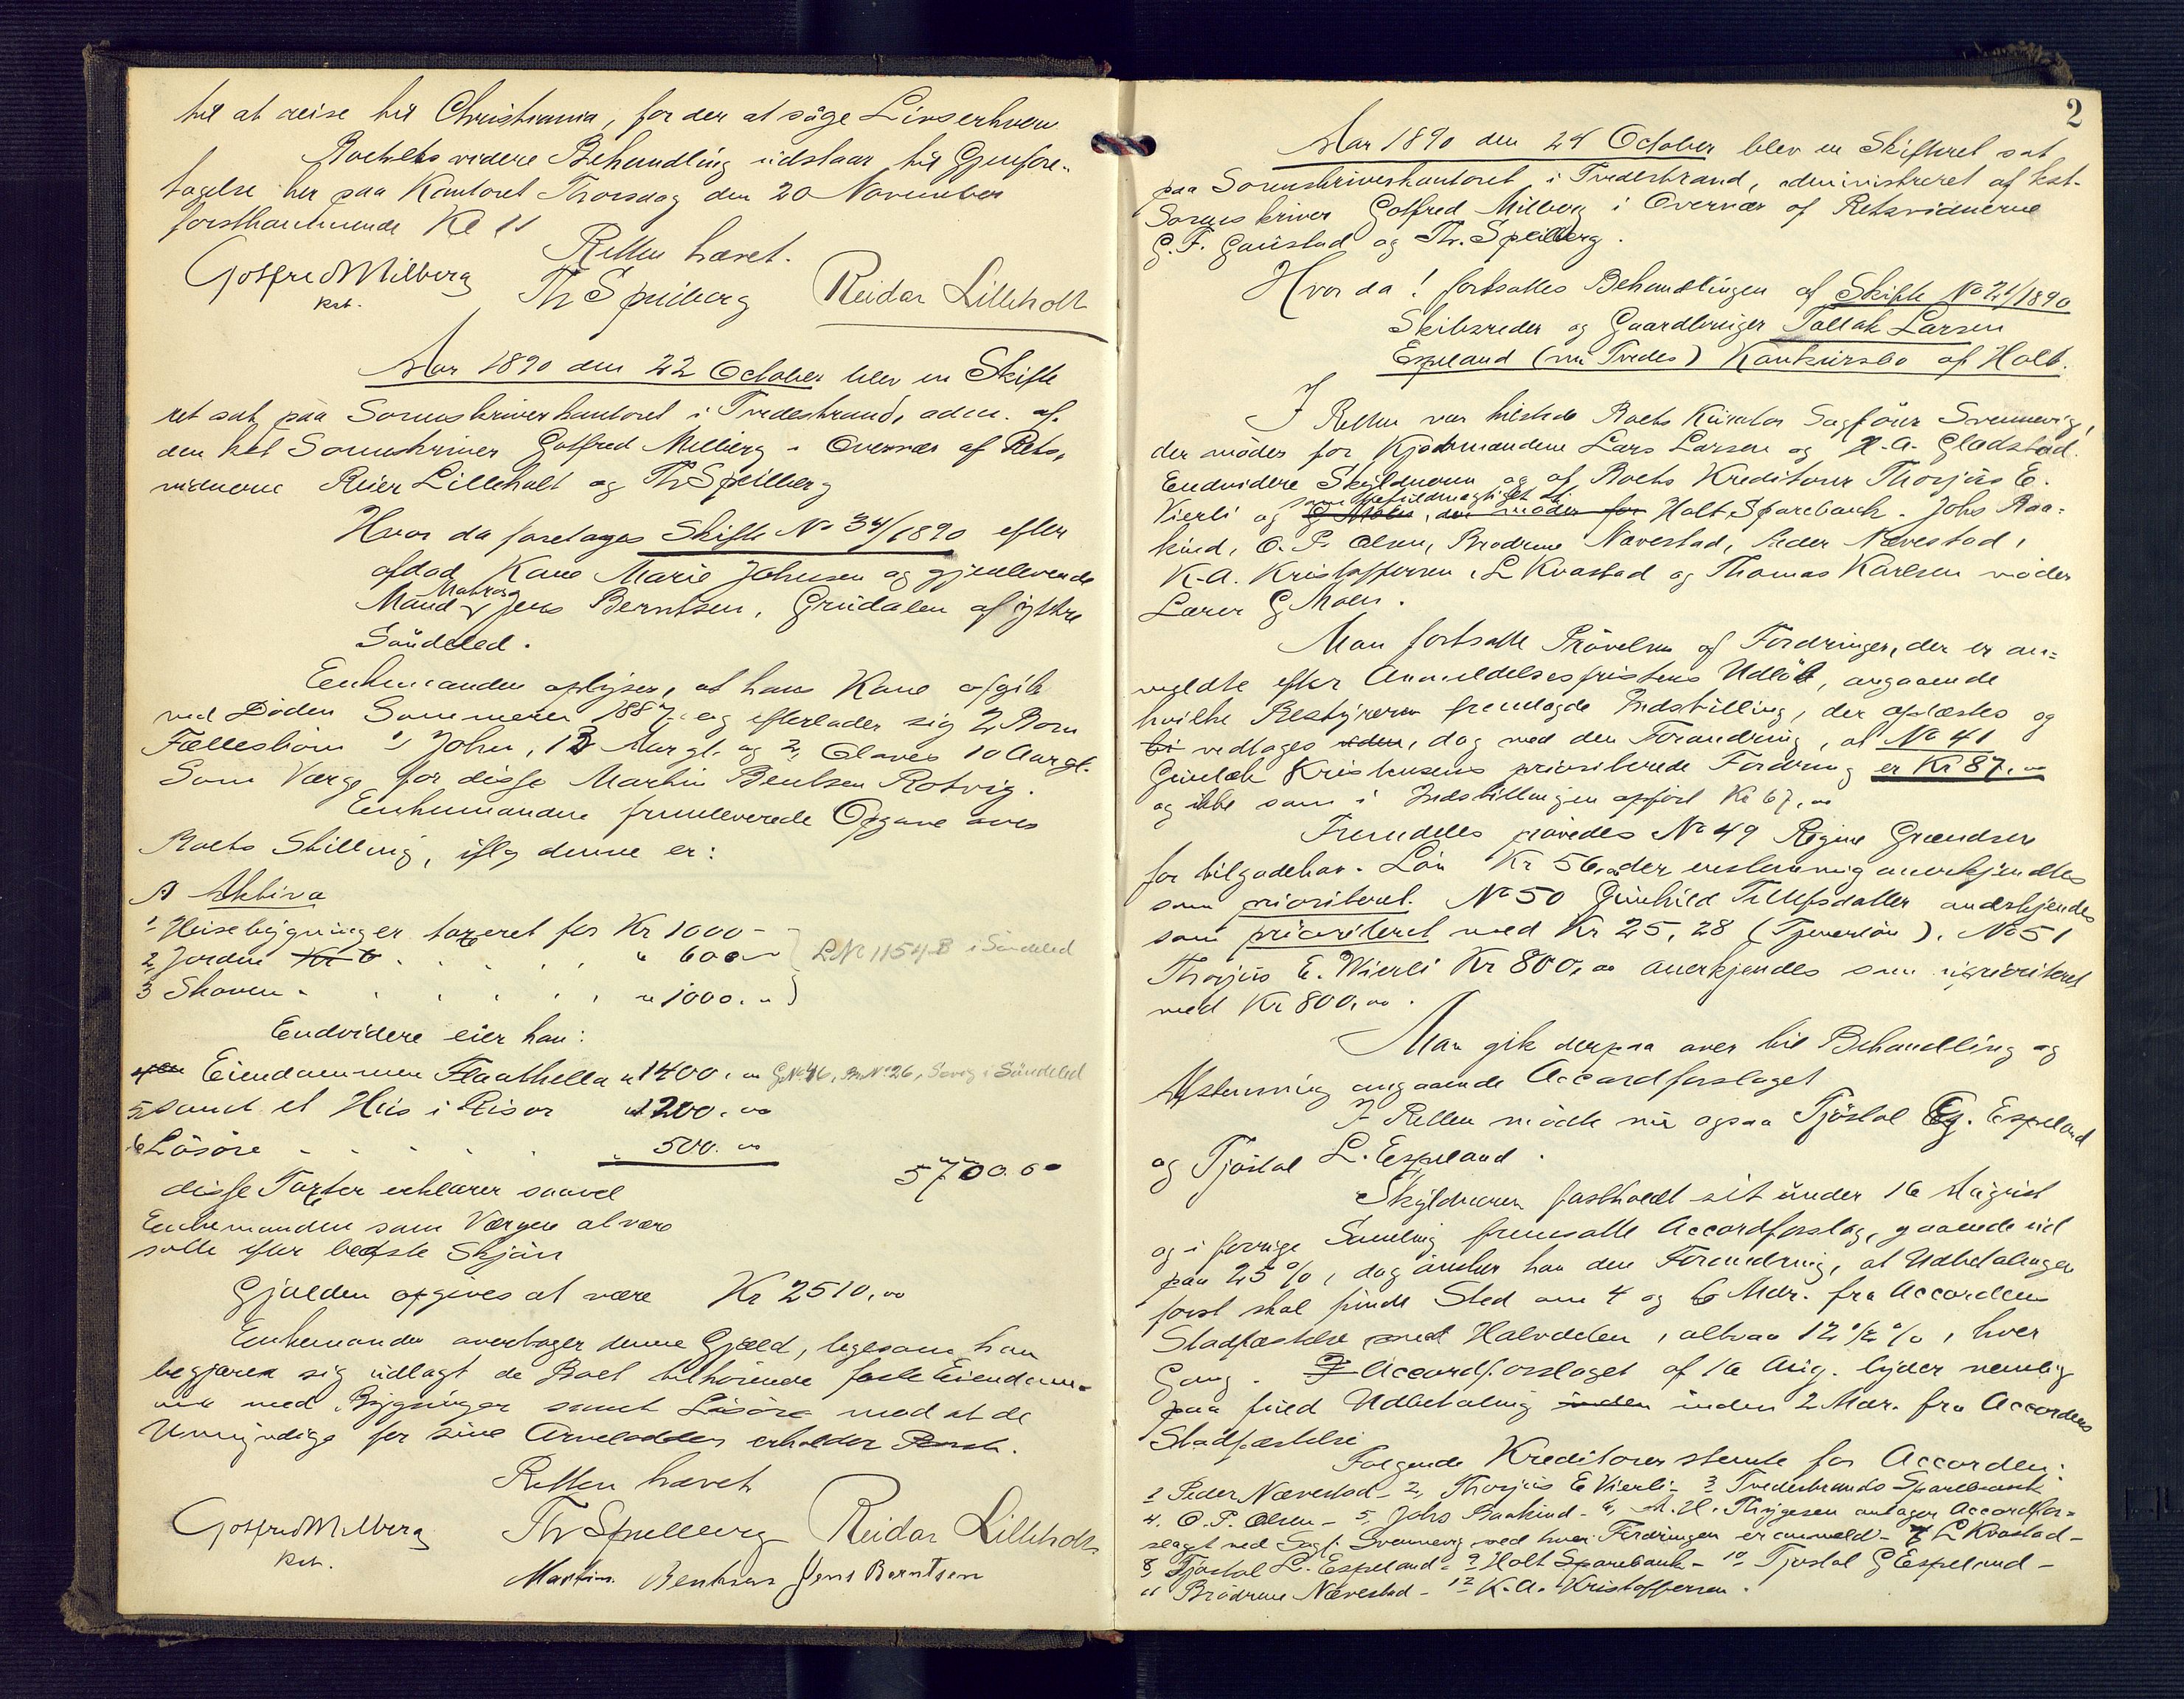 til at reise til Christiania, for der at søge Livserhverv
Boets videre Behandling udstaar til Gjenfore-
tagelse her paa Kontoret Thorsdag den 20 November
førstkommende Kl 11
Retten hævet.
Gotfred Milberg
kst.
Th Speilberg
Reidar Lilleholt
Aar 1890 den 22 October blev en Skifte
ret sat paa Sorenskriverkontoret i Tvedestrand, adm. af
den kst Sorenskriver Gotfred Milberg i Overvær af Rets-
vidnerne Reier Lilleholt og Th Speilberg
Hvor da foretages Skifte No 34/1890 efter
afdød Kone Marie Johnsen og gjenlevende
Mand Matros Jens Berntsen, Grüdalen af ytre
Søndeled.
Enkemanden oplyser, at hans Kone afgik
ved Døden Sommeren 1887 og efterlader sig 2 Børn
Fællesbørn 1, John, 13 Aar gl. og 2, Olaves 10 Aar gl.
Som Værge for disse Martin Bentsen Rotvig.
Enkemanden fremleverede Opgave over
Boets Stilling, iflg denne er:
A Aktiva
1 Huisebygninger taxeret for Kr 1000 -
2, Jorden Kr 6 . . . . . " 600 - LNr 1154 B i Søndeled
3 Skoven . . . . . . " 1000. "
Endvidere eier han:
Eiendommen Flaathella " 1400. " GNo 46, BrNo 26, Sevig i Søndeled
5 samt et Hus i Risør " 1200. 00
6 Løsøre . . . . . " 500. 00
5700.00
disse Taxter erklærer saavel
Enkemanden som Værgen at være
satte efter bedste Skjøn
Gjælden opgives at være Kr 2510,00
Enkemanden overtager denne Gjæld, ligesom han
begjærer sig udlagt de Boet tilhørende faste Eiendom-
me med Bygninger samt Løsøre mod at de
Umyndige for sine Arvelodder erholder
Retten hævet
Gotfred Milberg
kst.
Th Speilberg
Reidar Lilleholt
Martin Bentsen Jens Berntsen
2
Aar 1890 den 24 October blev en Skifteret sat
paa Sorenskriverkontoret i Tvedestrand, administreret af kst-
Sorenskriver Gotfred Milberg i Overvær af Retsvidnerne
G. F. Gaüstad og Th. Speilberg.
Hvor da! fortsattes Behandlingen af Skifte No 21/1890
Skibsreder og Gaardbruger Tallak Larsen
Espeland (nu Tvedes) Konkursbo af Holt.
I Retten var tilstede Boets Kurator Sagfører Svennevig,
der møder for Kjøbmændene Lars Larsen og H. A. Gladstad.
Endvidere Skyldneren og af Boets Kreditorer Thorjus E.
som befuldmægtiget for
Vierli og G Moen, der møder for Holt Sparebank. Johs Raa-
kind, O. P. Olsen, Brødrene Nævestad, Peder Nævestad,
K. A. Kristoffersen, L Kvastad og Thomas Karlsen møder
Lærer G Moen.
Man fortsatte Prøvelsen af Fordringer, der er an-
meldte efter Anmeldelsesfristens Udløb, angaaende
hvilke Bestyreren fremlagde Indstilling, der oplæstes og
bi vedtages uden, dog med den Forandring, at No 41
Gunlek Kristensens prioriterede Fordring er Kr 87.00
og ikke som i Indstillingen opført Kr 67,00
Fremdeles prøvedes No 49 Regine Grændsen
for tilgodehav. Løn Kr 56,00 der enstemmig anerkjendtes
som prioriteret. No 50 Gunhild Tellefsdatter anerkjendes
som prioriteret med Kr 25,28 (Tjenerløn). No 51
Thorjus E. Wierli Kr 800,00 anerkjendes som uprioriteret
med Kr 800,00.
Man gik derpaa over til Behandling og
Afstemning angaaende Accordforslaget
I Retten mødte nu ogsaa Tjøstol Eg. Espeland
og Tjøstol L. Espeland.
Skyldneren fastholdt sit under 16 August
og i forrige Samling fremsatte Accordforslag, gaaende ud
paa 25%, dog ønsker han den Forandring, at Udbetalingen
først skal finde Sted om 4 og 6 Mdr. fra Accordens
Stadfæstelse med Halvdelen, altsaa 12½%, hver
Gang. I Accordforslaget af 16 Aug. lyder nemlig
paa fuld Udbetaling inden inden 2 Mdr. fra Accordens
Stadfæstelse
Følgende Kreditorer stemte for Accorden:
1 Peder Nævestad - 2, Thorjus E Vierli - 3 Tvedestrands Sparebank
4. O. P. Olsen - 5, Johs Raakind - 6, A. H. Thygesen antager Accordfor-
slaget ved Sagf. Svennevig ved hvem Fordringen er anmeldt - 7 L Kvastad -
8, Tjøstol L. Espeland - 9 Holt Sparebank - 10 Tjøstol G Espeland -
11 Brødrene Nævestad - 12 K. A. Kristoffersen.